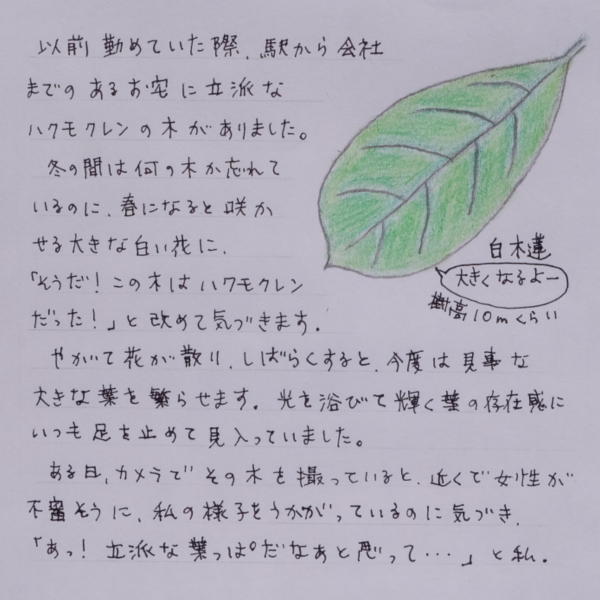 以前 勤めていた際、駅から会社
までの あるお宅に立派な
ハクモクレンの木がありました。
冬の間は何の木か忘れて
いるのに、春になると咲か
せる大きな白い花に、
「そうだ!この木はハクモクレン
だった!」と改めて気づきます。
やがて花が散り、しばらくすると、今度は見事な
大きな葉を繁らせます。光を浴びて輝く葉の存在感に
いつも足を止めて見入っていました。
ある日、カメラでその木を撮っていると、近くで女性が
不審そうに、私の様子をうかがっているのに気づき、
「あっ!立派な葉っぱだなあと思って・・・」と私。
白木蓮
大きくなるよー
樹高10mくらい